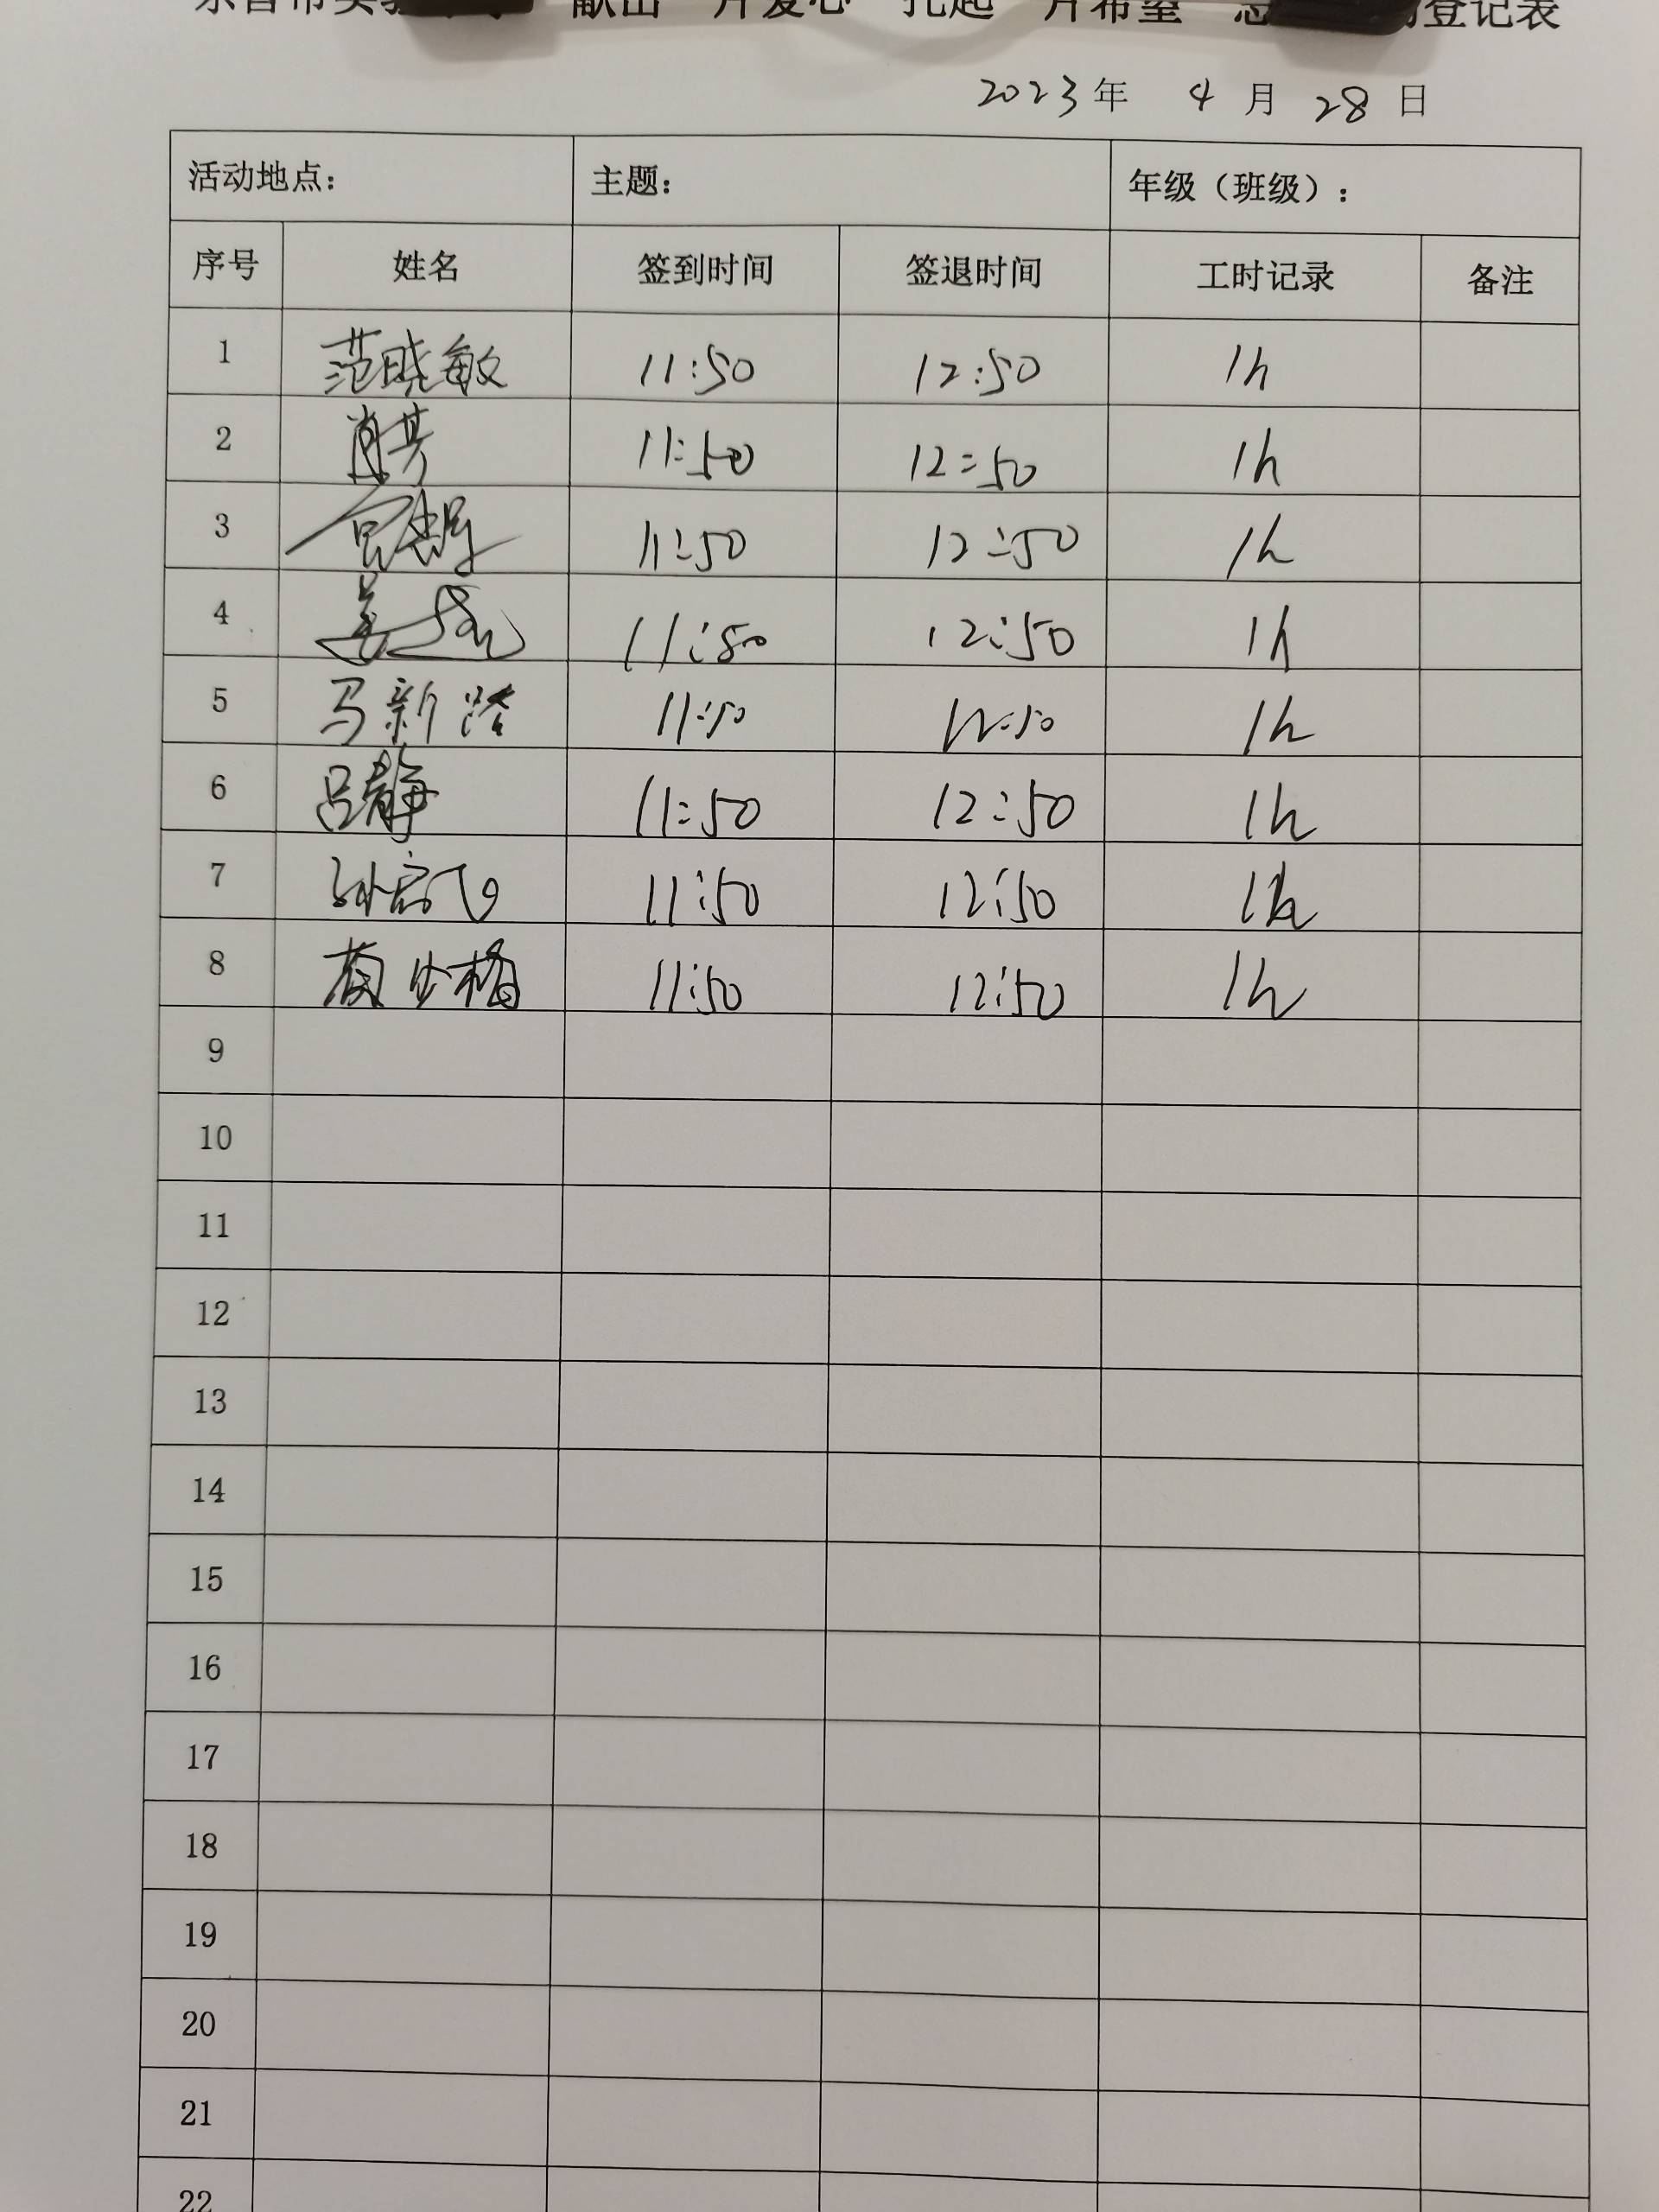 献出一片爱心 托起一片希望 登记表
2023年 4月28日
活动地点： 主题： 年级（班级）：
序号 姓名 签到时间 签退时间 工时记录 备注
1 范晓敏 11:50 12:50 1h
2 11:50 12:50 1h
3 11:50 12:50 1h
4 姜 11:50 12:50 1h
5 马新 11:50 12:50 1h
6 吕静 11:50 12:50 1h
7 孙启飞 11:50 12:50 1h
8 11:50 12:50 1h
9
10
11
12
13
14
15
16
17
18
19
20
21
22